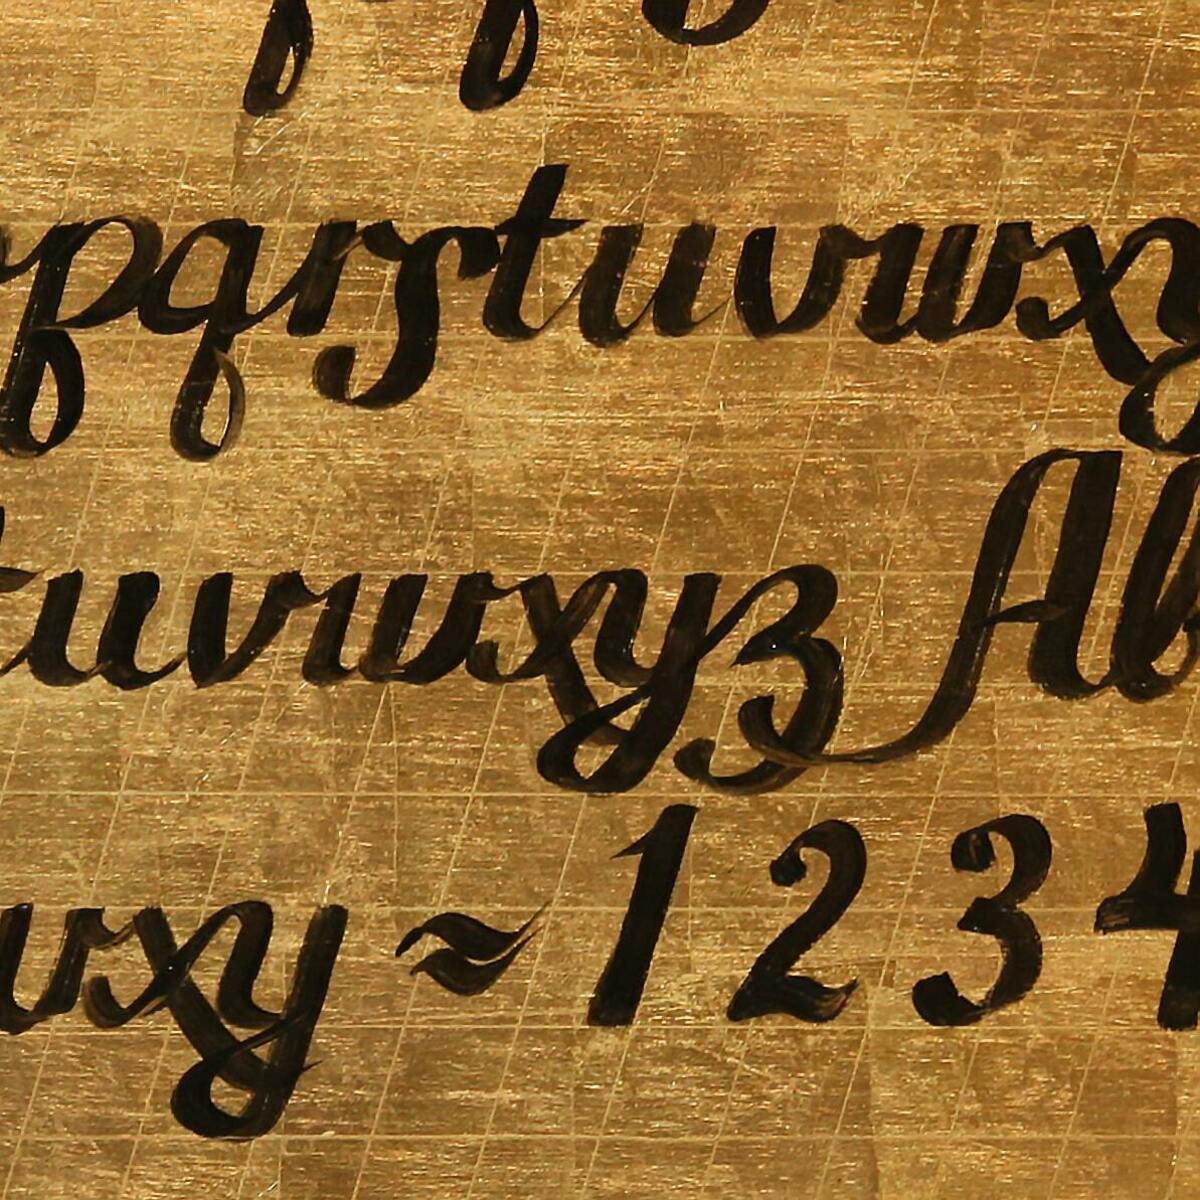 pqrstuvwxy
tuvwxyz Ab
wxy ~ 1 2 3 4